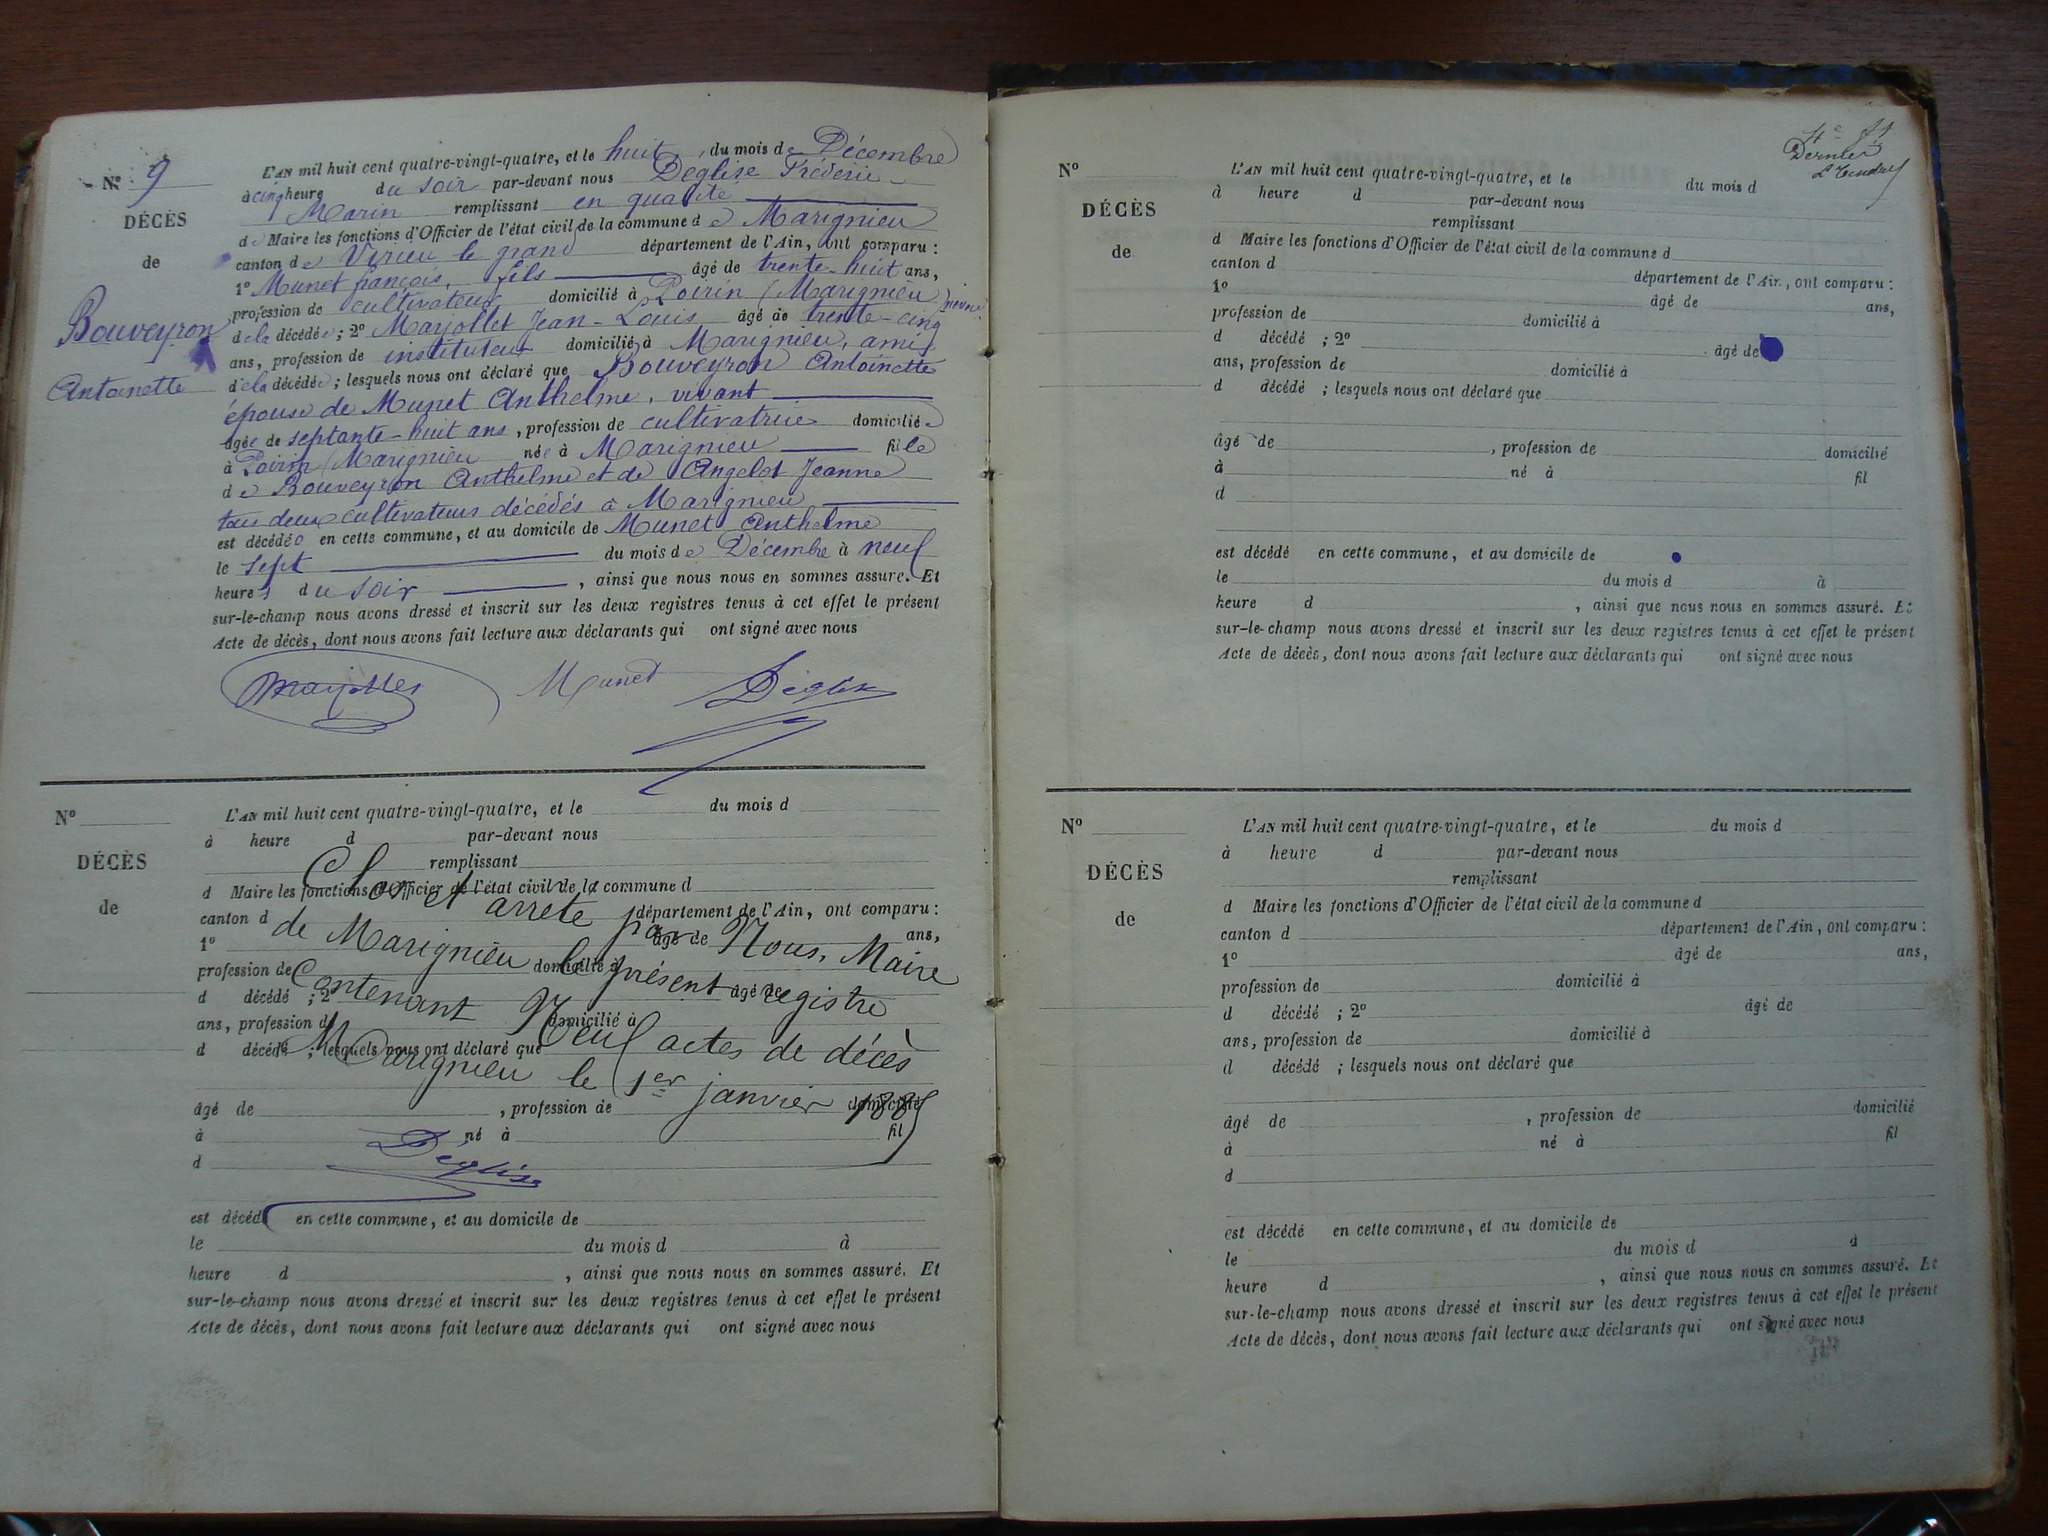 N° 9
DÉCÈS
de
Bouveyron
Antoinette
L'AN mil huit cent quatre-vingt-quatre, et le huit, du mois de Décembre
à cinq heure du soir par-devant nous Déglise Frédéric
Marin remplissant en qualité
de Maire les fonctions d'Officier de l'état civil de la commune de Marignieu
canton de Virieu le grand département de l'Ain, ont comparu :
1° Munet françois, fils âgé de trente-huit ans,
profession de cultivateur domicilié à Poirin (Marignieu)
de la décédée ; 2° Marjollet Jean-Louis âgé de trente-cinq
ans, profession de instituteur domicilié à Marignieu, ami
de la décédée ; lesquels nous ont déclaré que Bouveyron Antoinette
épouse de Munet Anthelme, vivant
âgée de septante-huit ans, profession de cultivatrice domiciliée
à Poirin (Marignieu née à Marignieu fille
de Bouveyron Anthelme et de Angelot Jeanne
tous deux cultivateurs décédés à Marignieu
est décédée en cette commune, et au domicile de Munet Anthelme
le sept du mois de Décembre à neuf
heures du soir, ainsi que nous nous en sommes assuré. Et
sur-le-champ nous avons dressé et inscrit sur les deux registres tenus à cet effet le présent
Acte de décès, dont nous avons fait lecture aux déclarants qui ont signé avec nous
Marjollet Munet Déglise
N°
DÉCÈS
de
L'AN mil huit cent quatre-vingt-quatre, et le du mois d
à heure d par-devant nous
remplissant
d Maire les fonctions d'Officier de l'état civil de la commune d
canton d département de l'Ain, ont comparu :
1° âgé de ans,
profession de domicilié à
d décédé ; 2° âgé de
ans, profession de domicilié à
d décédé ; lesquels nous ont déclaré que
Clos et arrêté par Nous, Maire
de Marignieu le présent registre
Contenant Neuf actes de décès
Marignieu le 1er janvier 1885
âgé de , profession de domicilié
à né à fil
d
Déglise
est décédé en cette commune, et au domicile de
le du mois d à
heure d , ainsi que nous nous en sommes assuré. Et
sur-le-champ nous avons dressé et inscrit sur les deux registres tenus à cet effet le présent
Acte de décès, dont nous avons fait lecture aux déclarants qui ont signé avec nous
4e ft
Dernier
N°
DÉCÈS
de
L'AN mil huit cent quatre-vingt-quatre, et le du mois d
à heure d par-devant nous
remplissant
d Maire les fonctions d'Officier de l'état civil de la commune d
canton d département de l'Ain, ont comparu :
1° âgé de ans,
profession de domicilié à
d décédé ; 2° âgé de
ans, profession de domicilié à
d décédé ; lesquels nous ont déclaré que
âgé de , profession de domicilié
à né à fil
d
est décédé en cette commune, et au domicile de
le du mois d à
heure d , ainsi que nous nous en sommes assuré. Et
sur-le-champ nous avons dressé et inscrit sur les deux registres tenus à cet effet le présent
Acte de décès, dont nous avons fait lecture aux déclarants qui ont signé avec nous
N°
DÉCÈS
de
L'AN mil huit cent quatre-vingt-quatre, et le du mois d
à heure d par-devant nous
remplissant
d Maire les fonctions d'Officier de l'état civil de la commune d
canton d département de l'Ain, ont comparu :
1° âgé de ans,
profession de domicilié à
d décédé ; 2° âgé de
ans, profession de domicilié à
d décédé ; lesquels nous ont déclaré que
âgé de , profession de domicilié
à né à fil
d
est décédé en cette commune, et au domicile de
le du mois d à
heure d , ainsi que nous nous en sommes assuré. Et
sur-le-champ nous avons dressé et inscrit sur les deux registres tenus à cet effet le présent
Acte de décès, dont nous avons fait lecture aux déclarants qui ont signé avec nous